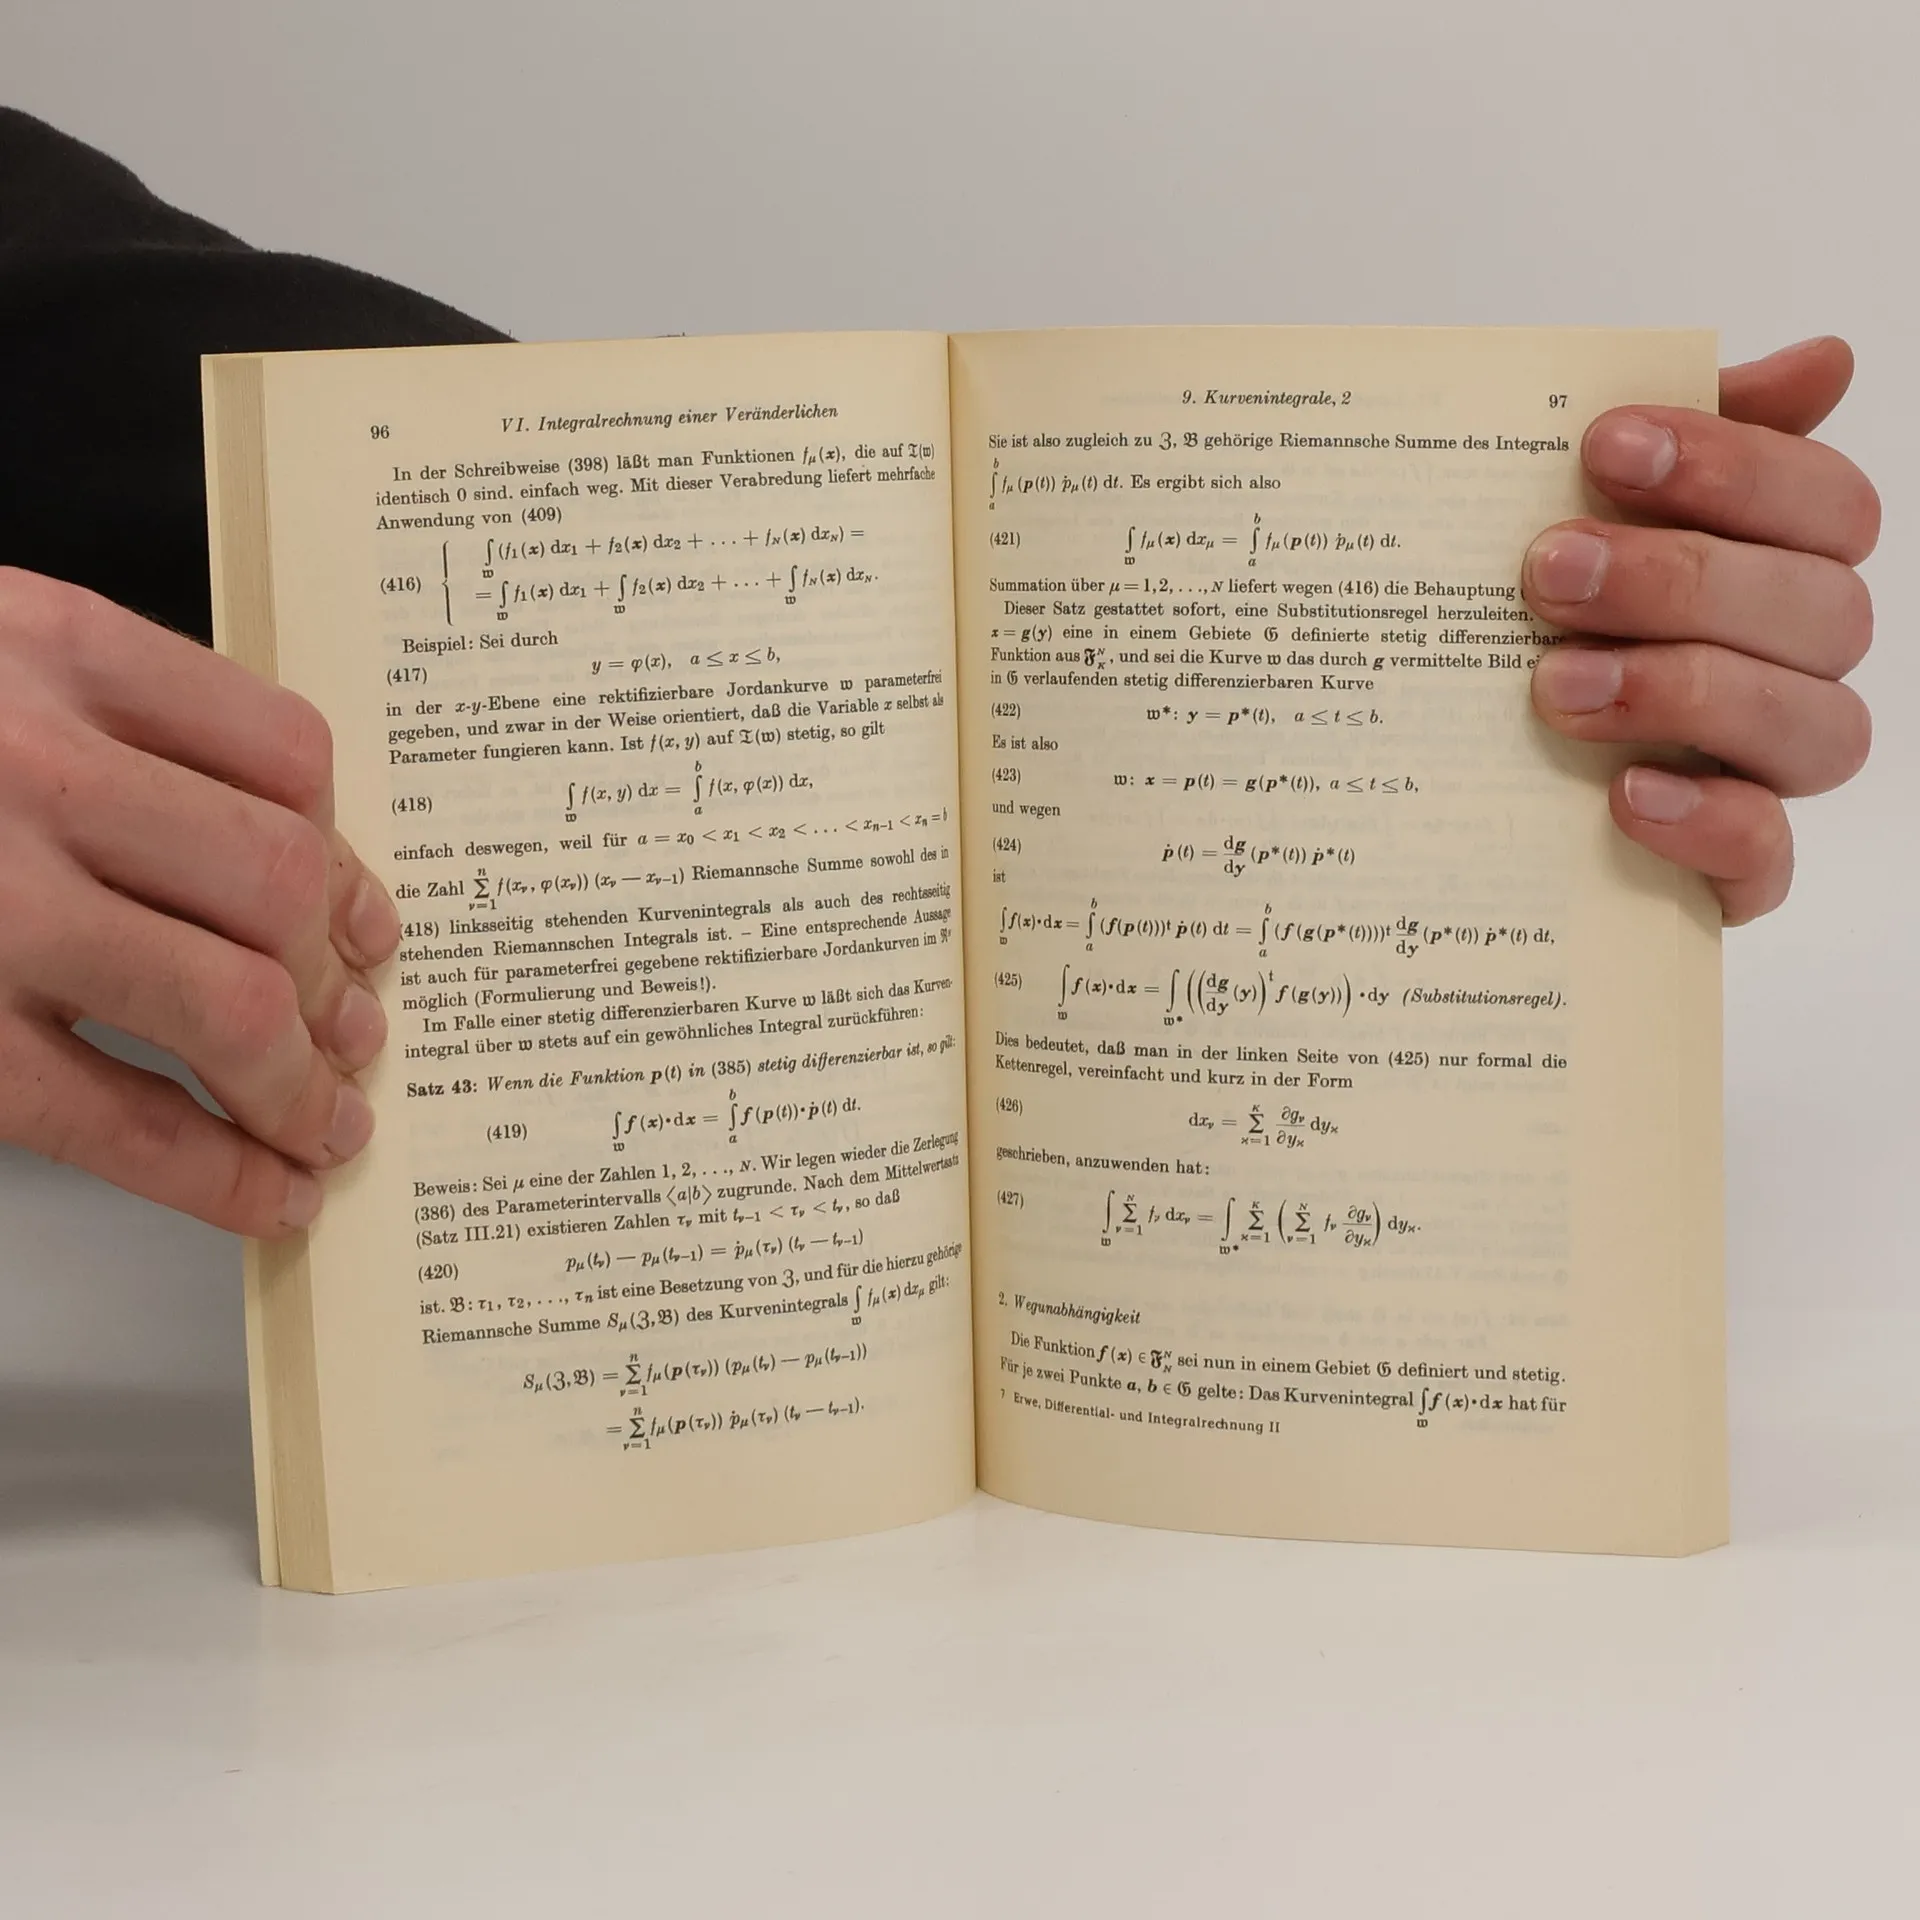 96
VI. Integralrechnung einer Veränderlichen
In der Schreibweise (398) läßt man Funktionen fμ(x), die auf 𝔗(𝔴)
identisch 0 sind. einfach weg. Mit dieser Verabredung liefert mehrfache
Anwendung von (409)
∫𝔴 (f1(x) dx1 + f2(x) dx2 + . . . + fN(x) dxN) =
(416)
= ∫𝔴 f1(x) dx1 + ∫𝔴 f2(x) dx2 + . . . + ∫𝔴 fN(x) dxN.
Beispiel: Sei durch
(417) y = φ(x), a ≤ x ≤ b,
in der x-y-Ebene eine rektifizierbare Jordankurve 𝔴 parameterfrei
gegeben, und zwar in der Weise orientiert, daß die Variable x selbst als
Parameter fungieren kann. Ist f(x, y) auf 𝔗(𝔴) stetig, so gilt
(418) ∫𝔴 f(x, y) dx = ∫ₐᵇ f(x, φ(x)) dx,
einfach deswegen, weil für a = x0 < x1 < x2 < . . . < xn−1 < xn = b
die Zahl ∑ν=1ⁿ f(xν, φ(xν)) (xν — xν−1) Riemannsche Summe sowohl des in
(418) linksseitig stehenden Kurvenintegrals als auch des rechtsseitig
stehenden Riemannschen Integrals ist. – Eine entsprechende Aussage
ist auch für parameterfrei gegebene rektifizierbare Jordankurven im
möglich (Formulierung und Beweis!).
Im Falle einer stetig differenzierbaren Kurve 𝔴 läßt sich das Kurven-
integral über 𝔴 stets auf ein gewöhnliches Integral zurückführen:
Satz 43: Wenn die Funktion p(t) in (385) stetig differenzierbar ist, so gilt:
(419) ∫𝔴 f(x)·dx = ∫ₐᵇ f(p(t))·ṗ(t) dt.
Beweis: Sei μ eine der Zahlen 1, 2, . . ., N. Wir legen wieder die Zerlegung
(386) des Parameterintervalls ⟨a|b⟩ zugrunde. Nach dem Mittelwertsatz
(Satz III.21) existieren Zahlen τν mit tν−1 < τν < tν, so daß
(420) pμ(tν) — pμ(tν−1) = ṗμ(τν) (tν — tν−1)
ist. 𝔅: τ1, τ2, . . ., τn ist eine Besetzung von ℨ, und für die hierzu gehörige
Riemannsche Summe Sμ(ℨ,𝔅) des Kurvenintegrals ∫𝔴 fμ(x) dxμ gilt:
Sμ(ℨ,𝔅) = ∑ν=1ⁿ fμ(p(τν)) (pμ(tν) — pμ(tν−1))
= ∑ν=1ⁿ fμ(p(τν)) ṗμ(τν) (tν — tν−1).
9. Kurvenintegrale, 2
97
Sie ist also zugleich zu ℨ, 𝔅 gehörige Riemannsche Summe des Integrals
∫ₐᵇ fμ(p(t)) ṗμ(t) dt. Es ergibt sich also
(421) ∫𝔴 fμ(x) dxμ = ∫ₐᵇ fμ(p(t)) ṗμ(t) dt.
Summation über μ = 1, 2, . . ., N liefert wegen (416) die Behauptung
Dieser Satz gestattet sofort, eine Substitutionsregel herzuleiten.
x = g(y) eine in einem Gebiete 𝔊 definierte stetig differenzierbare
Funktion aus 𝔉ᴺK, und sei die Kurve 𝔴 das durch g vermittelte Bild
in 𝔊 verlaufenden stetig differenzierbaren Kurve
(422) 𝔴*: y = p*(t), a ≤ t ≤ b.
Es ist also
(423) 𝔴: x = p(t) = g(p*(t)), a ≤ t ≤ b,
und wegen
(424) ṗ(t) = dg/dy (p*(t)) ṗ*(t)
ist
∫𝔴 f(x)·dx = ∫ₐᵇ (f(p(t)))ᵗ ṗ(t) dt = ∫ₐᵇ (f(g(p*(t))))ᵗ dg/dy (p*(t)) ṗ*(t) dt,
(425) ∫𝔴 f(x)·dx = ∫𝔴* ((dg/dy (y))ᵗ f(g(y)))·dy (Substitutionsregel).
Dies bedeutet, daß man in der linken Seite von (425) nur formal die
Kettenregel, vereinfacht und kurz in der Form
(426) dxν = ∑ϰ=1ᴷ ∂gν/∂yϰ dyϰ
geschrieben, anzuwenden hat:
(427) ∫𝔴 ∑ν=1ᴺ fν dxν = ∫𝔴* ∑ϰ=1ᴷ (∑ν=1ᴺ fν ∂gν/∂yϰ) dyϰ.
2. Wegunabhängigkeit
Die Funktion f(x) ∈ 𝔉ᴺN sei nun in einem Gebiet 𝔊 definiert und stetig.
Für je zwei Punkte a, b ∈ 𝔊 gelte: Das Kurvenintegral ∫𝔴 f(x)·dx hat für
7 Erwe, Differential- und Integralrechnung II